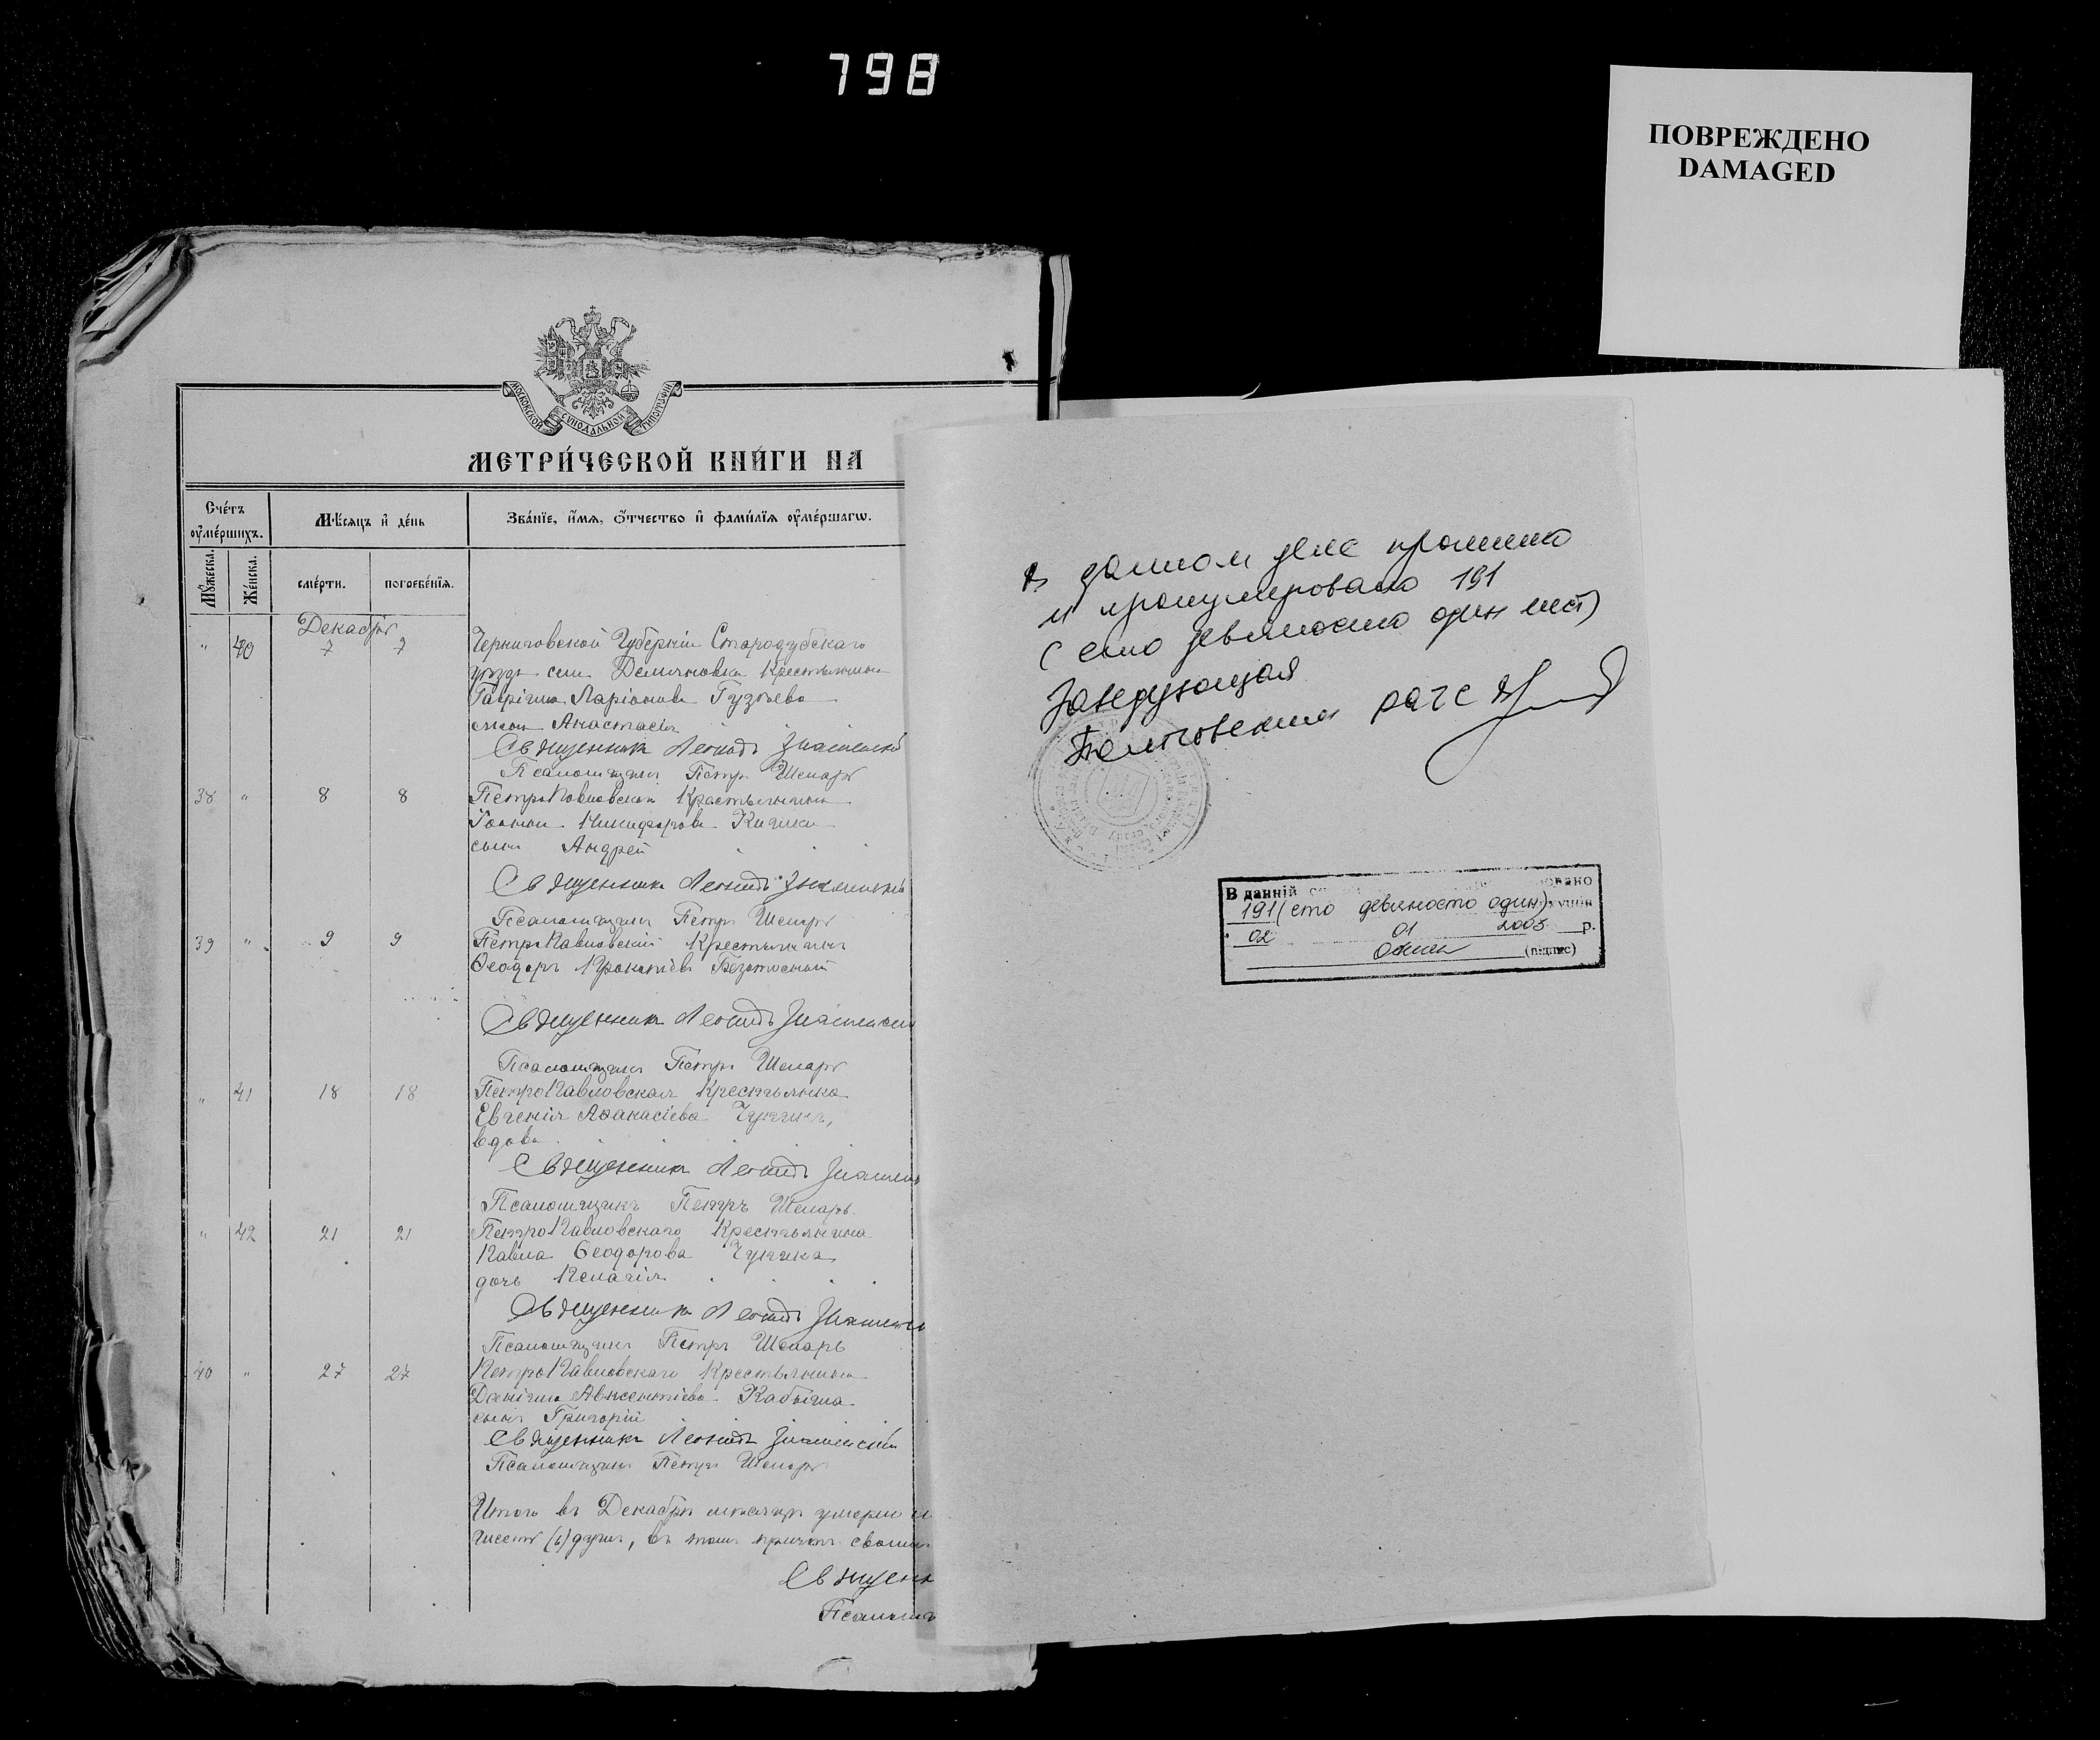 798
ПОВРЕЖДЕНО
DAMAGED
МОСКОВСКОЙ СУНОДАЛЬНОЙ ТИПОГРАФІИ
МЕТРИ́ЧЕСКОЙ КНИ́ГИ НА
Сче́тъ оумéршихъ.
Мѣ́сяцъ и҆ де́нь
Зва́нїе, и҆́мя, ѻ҆́тчество и҆ фами́лїя оумéршагѡ.
Мꙋ́жеска.
Же́нска.
сме́рти.
погребе́нїя.
Декабрь
" 40 7 7 Черниговской Губерніи Стародубскаго
уѣзда села Демьяновки Крестьянина
Гавріила Ларіонова Гузѣева
жена Анастасія
Священникъ Леонидъ Знаменскій
Псаломщикъ Петръ Шепарь
38 " 8 8 ПетроПавловскаго Крестьянина
Іоанна Никифорова
сынъ Андрей
Священникъ Леонидъ Знаменскій
Псаломщикъ Петръ Шепарь
39 " 9 9 ПетроПавловскій Крестьянинъ
Ѳеодоръ Безотосный
Священникъ Леонидъ Знаменскій
Псаломщикъ Петръ Шепарь
" 41 18 18 ПетроПавловская Крестьянка
Евгенія Аѳанасіева
вдова
Священникъ Леонидъ Знаменс
Псаломщикъ Петръ Шепарь
" 42 21 21 ПетроПавловскаго Крестьянина
Павла Ѳеодорова
дочь Пелагія
Священникъ Леонидъ Знаменс
Псаломщикъ Петръ Шепарь
40 " 27 27 ПетроПавловскаго Крестьянина
Даніила Авксентіева Кабыша
сынъ Григорій
Священникъ Леонидъ Знаменскій
Псаломщикъ Петръ Шепарь
Итого въ Декабрѣ мѣсяцѣ умерло
шесть (6) душъ, въ томъ причтъ
Священ
Псаломщ
В данном деле прошито
и пронумеровано 191
(сто девяносто один лист)
Заведующая
рагс
В данній
191 (сто девяносто один)
02 01 2003 р.
(підпис)